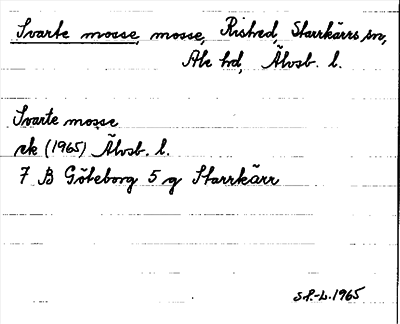 Svarte mosse, mosse, Rished, Starrkärrs sn,
Ale hd, Älvsb. l.
Svarte mosse
ek (1965) Älvsb. l.
7 B Göteborg 5 g Starrkärr
S.P.-L. 1965